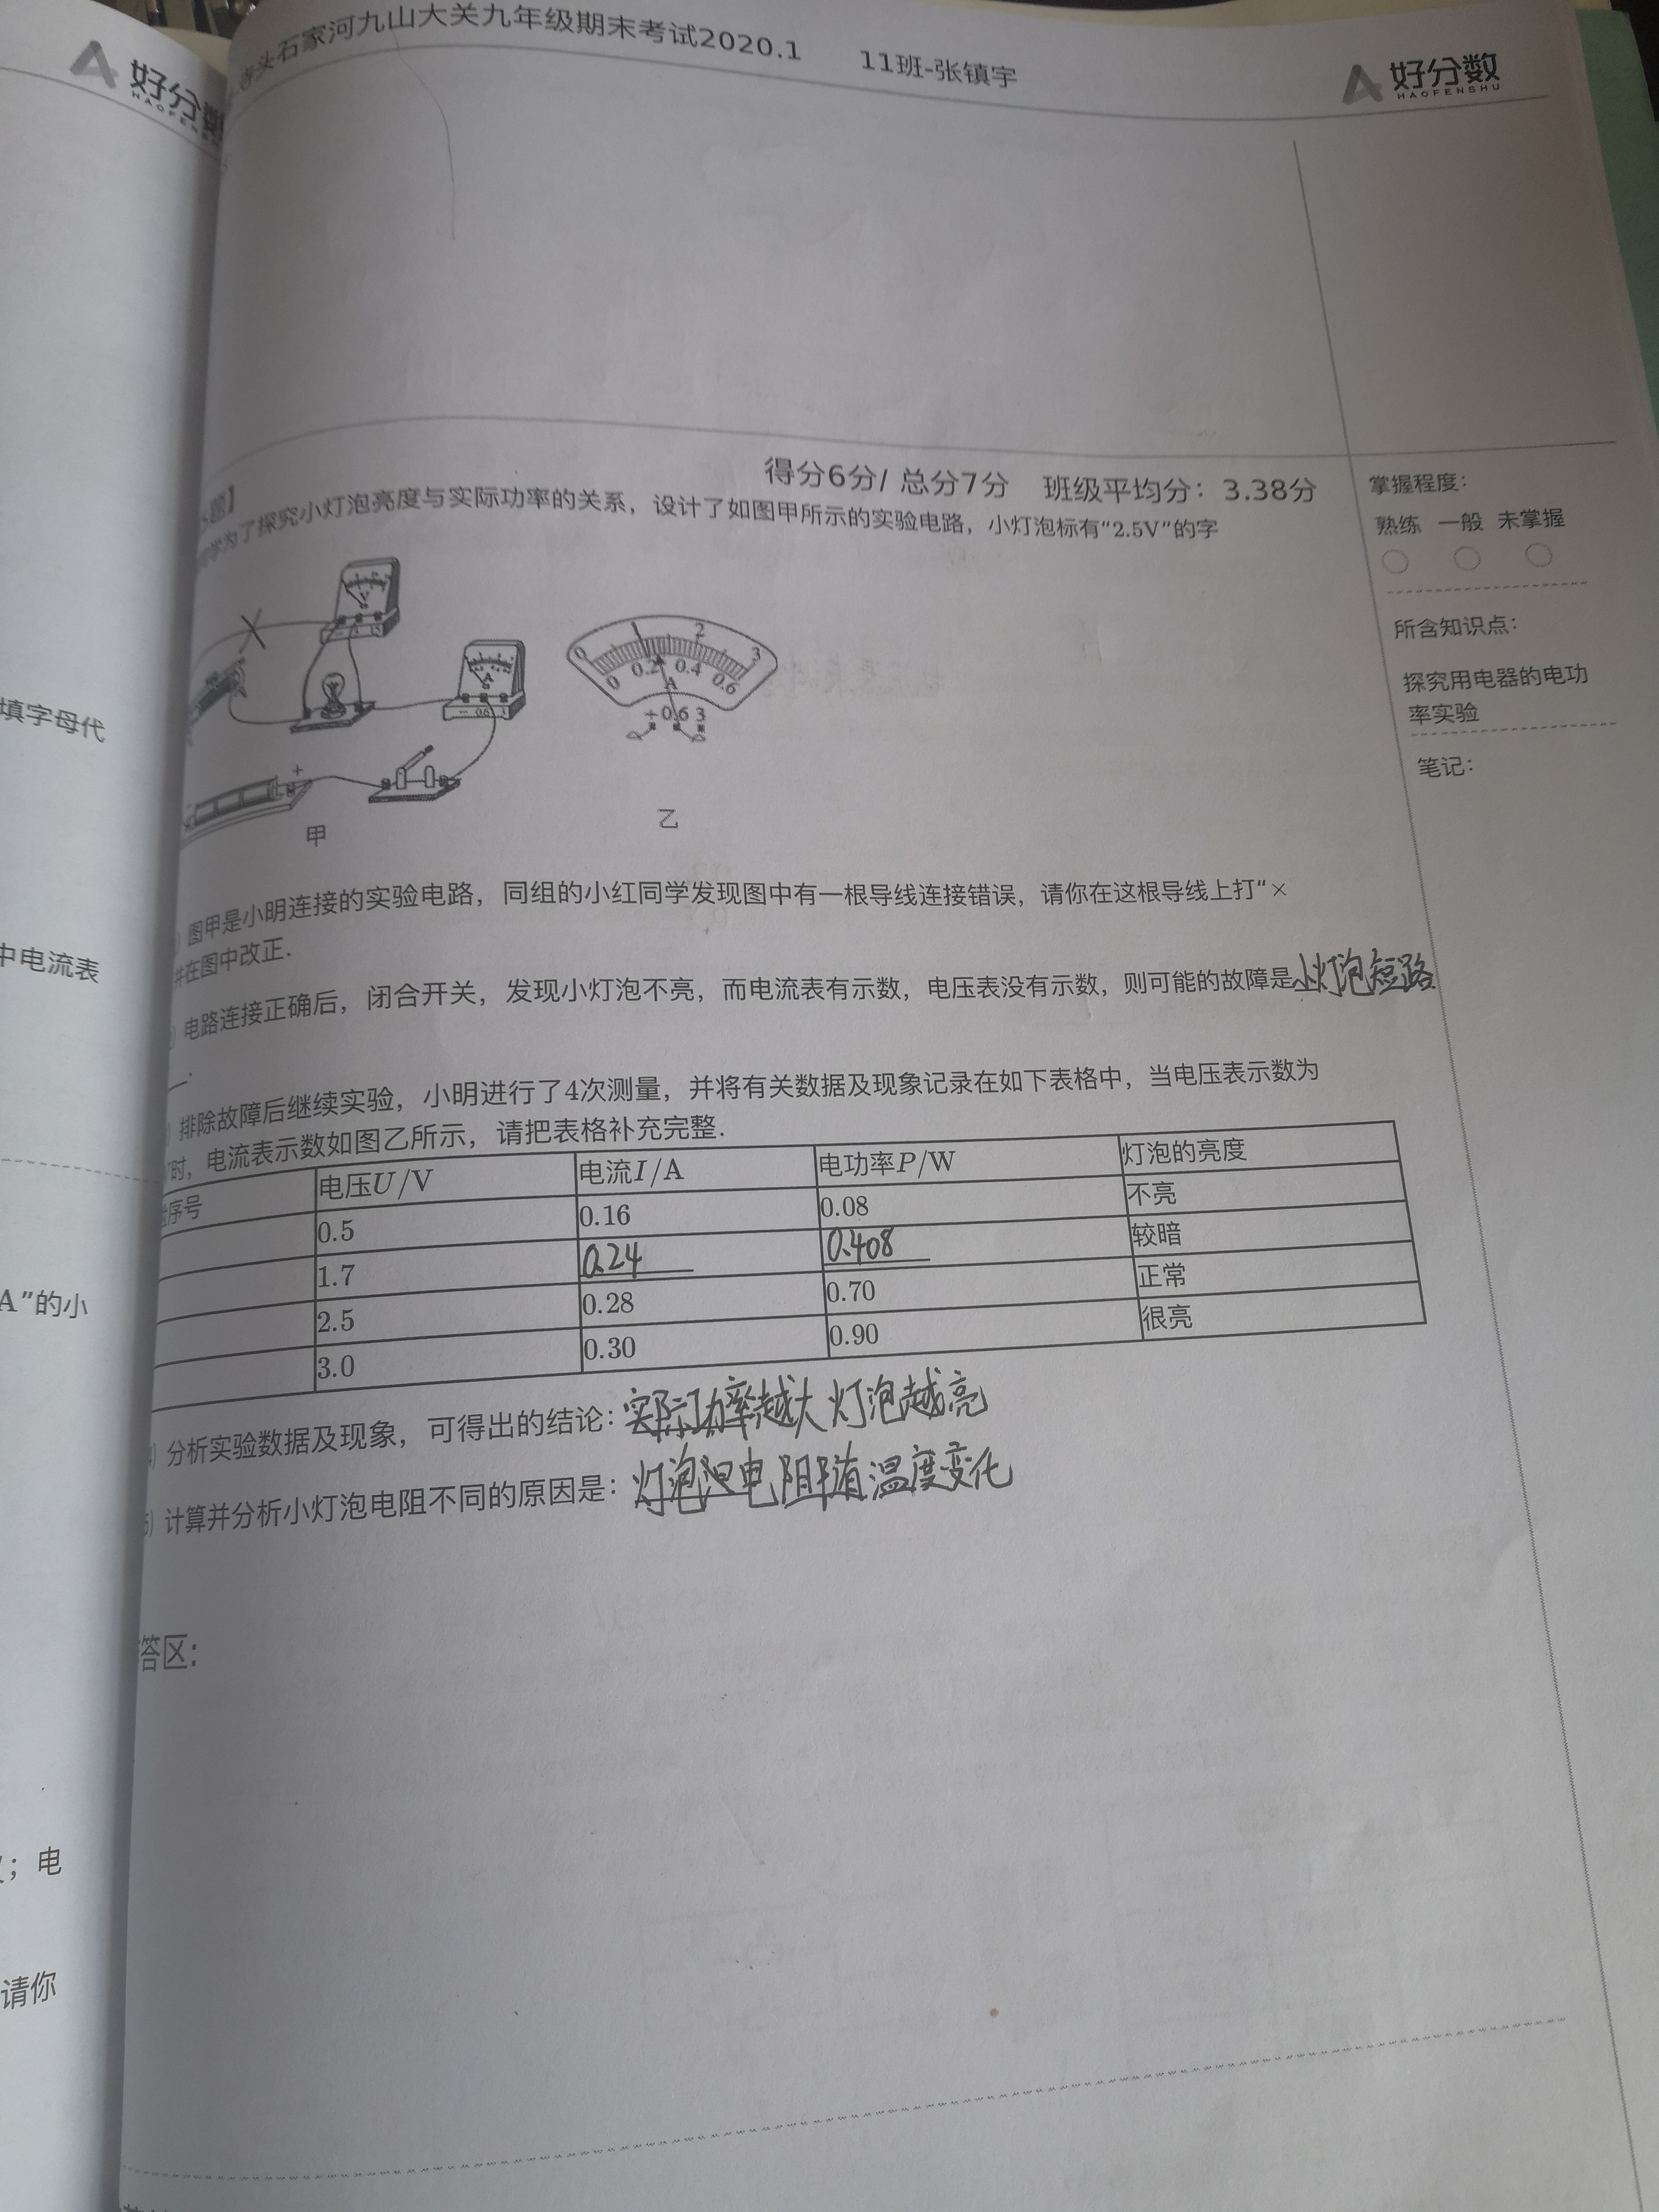 好分数
HAOFENS
填字母代
中电流表
A”的小
；电
请你
石家河九山大关九年级期末考试2020.1 11班-张镇宇
好分数
HAOFENSHU
题】
得分6分/ 总分7分 班级平均分：3.38分
同学为了探究小灯泡亮度与实际功率的关系，设计了如图甲所示的实验电路，小灯泡标有“2.5V”的字
V
A
- 0.6 3
+
甲
0 2 3
0 0.2 0.4 0.6
A
+0.6 3
乙
）图甲是小明连接的实验电路，同组的小红同学发现图中有一根导线连接错误，请你在这根导线上打“×
并在图中改正.
）电路连接正确后，闭合开关，发现小灯泡不亮，而电流表有示数，电压表没有示数，则可能的故障是小灯泡短路
.
）排除故障后继续实验，小明进行了4次测量，并将有关数据及现象记录在如下表格中，当电压表示数为
时，电流表示数如图乙所示，请把表格补充完整.
序号 电压U/V 电流I/A 电功率P/W 灯泡的亮度
0.5 0.16 0.08 不亮
1.7 0.24 0.408 较暗
2.5 0.28 0.70 正常
3.0 0.30 0.90 很亮
）分析实验数据及现象，可得出的结论：实际功率越大灯泡越亮
5）计算并分析小灯泡电阻不同的原因是：灯泡电阻随温度变化
答区：
掌握程度：
熟练 一般 未掌握
所含知识点：
探究用电器的电功
率实验
笔记：